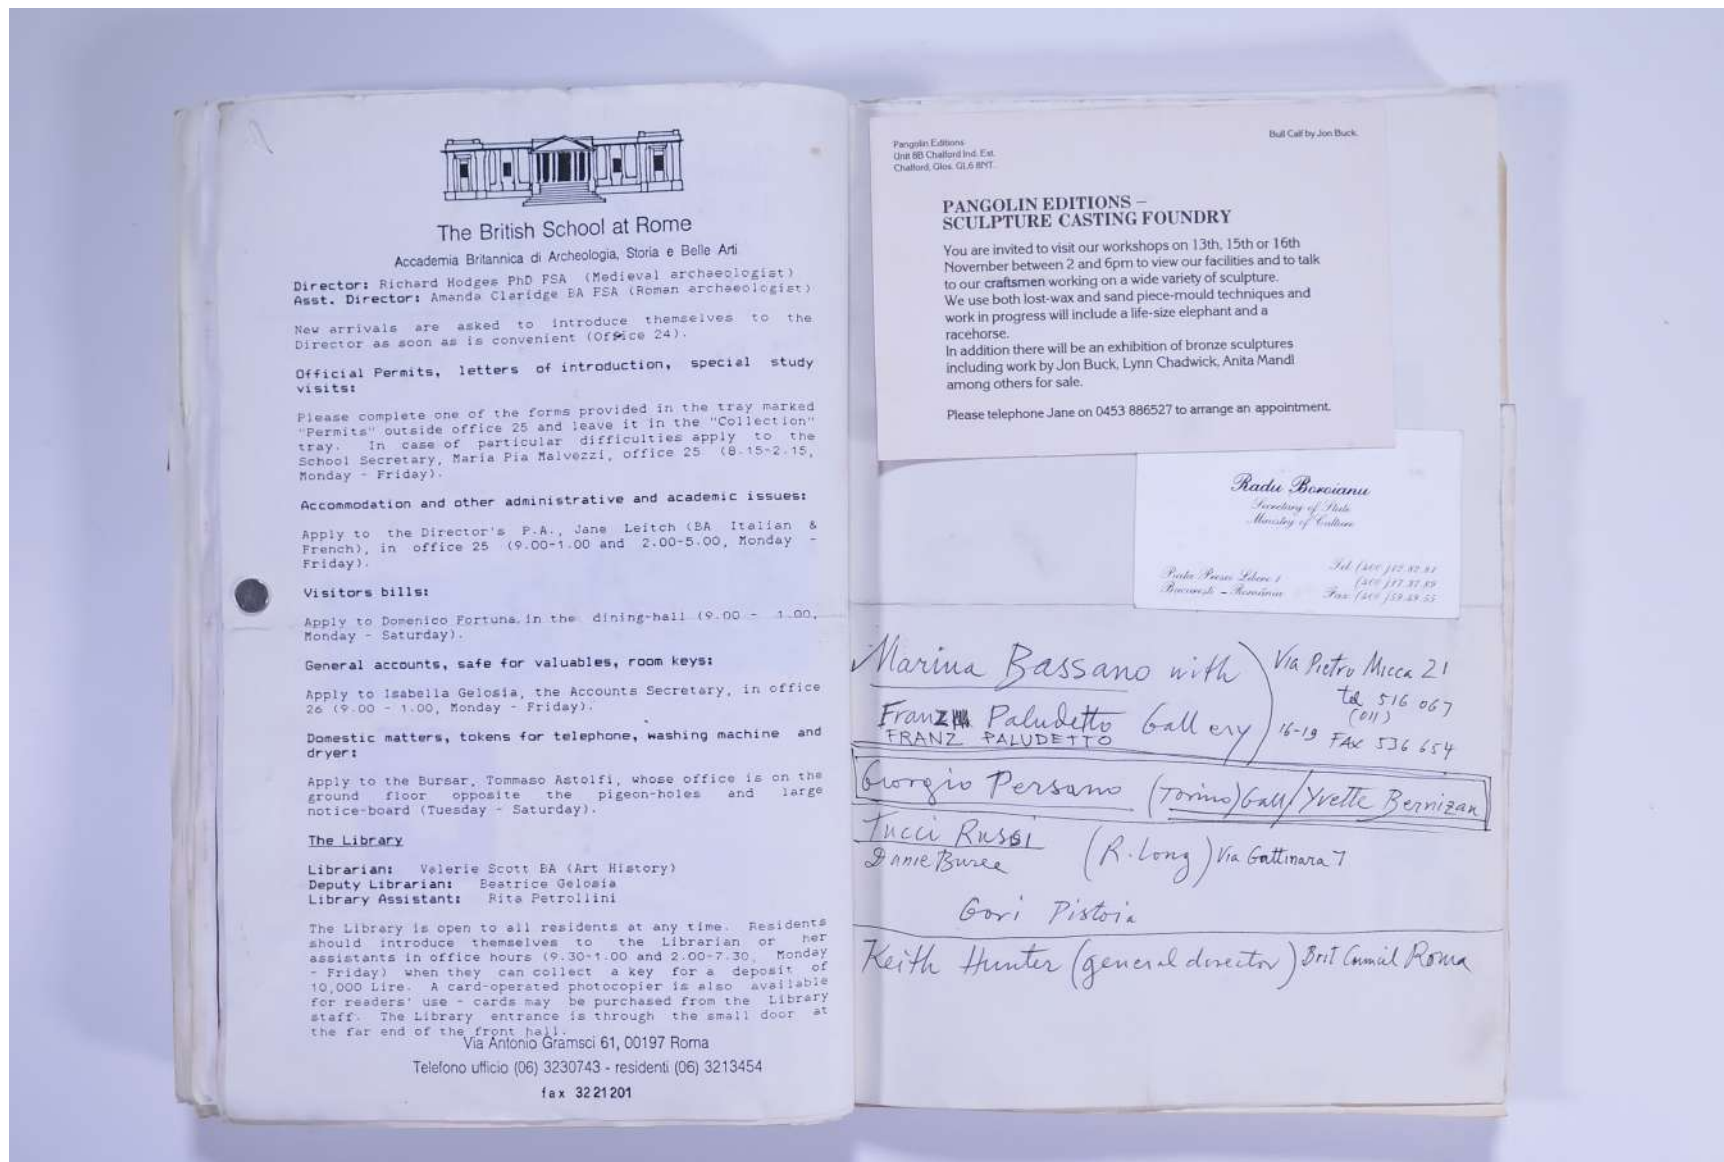 The British School at Rome
Accademia Britannica di Archeologia, Storia e Belle Arti
Director: Richard Hodges PhD FSA (Medieval archaeologist)
Asst. Director: Amanda Claridge BA FSA (Roman archaeologist)
New arrivals are asked to introduce themselves to the
Director as soon as is convenient (Office 24).
Official Permits, letters of introduction, special study
visits:
Please complete one of the forms provided in the tray marked
"Permits" outside office 25 and leave it in the "Collection"
tray. In case of particular difficulties apply to the
School Secretary, Maria Pia Malvezzi, office 25 (8.15-2.15,
Monday - Friday).
Accommodation and other administrative and academic issues:
Apply to the Director's P.A., Jane Leitch (BA Italian &
French), in office 25 (9.00-1.00 and 2.00-5.00, Monday -
Friday).
Visitors bills:
Apply to Domenico Fortuna in the dining-hall (9.00 - 1.00,
Monday - Saturday).
General accounts, safe for valuables, room keys:
Apply to Isabella Gelosia, the Accounts Secretary, in office
26 (9.00 - 1.00, Monday - Friday).
Domestic matters, tokens for telephone, washing machine and
dryer:
Apply to the Bursar, Tommaso Astolfi, whose office is on the
ground floor opposite the pigeon-holes and large
notice-board (Tuesday - Saturday).
The Library
Librarian: Valerie Scott BA (Art History)
Deputy Librarian: Beatrice Gelosia
Library Assistant: Rita Petrollini
The Library is open to all residents at any time. Residents
should introduce themselves to the Librarian or her
assistants in office hours (9.30-1.00 and 2.00-7.30, Monday
- Friday) when they can collect a key for a deposit of
10,000 Lire. A card-operated photocopier is also available
for readers' use - cards may be purchased from the Library
staff. The Library entrance is through the small door at
the far end of the front hall.
Via Antonio Gramsci 61, 00197 Roma
Telefono ufficio (06) 3230743 - residenti (06) 3213454
fax 3221201
Pangolin Editions
Unit 8B Chalford Ind. Est.
Chalford, Glos. GL6 8NT.
Bull Calf by Jon Buck.
PANGOLIN EDITIONS –
SCULPTURE CASTING FOUNDRY
You are invited to visit our workshops on 13th, 15th or 16th
November between 2 and 6pm to view our facilities and to talk
to our craftsmen working on a wide variety of sculpture.
We use both lost-wax and sand piece-mould techniques and
work in progress will include a life-size elephant and a
racehorse.
In addition there will be an exhibition of bronze sculptures
including work by Jon Buck, Lynn Chadwick, Anita Mandl
among others for sale.
Please telephone Jane on 0453 886527 to arrange an appointment.
Radu Boroianu
Secretary of State
Ministry of Culture
Piata Presei Libere 1
Bucuresti - România
Marina Bassano with
Franz Paludetto Gallery
FRANZ PALUDETTO
Via Pietro Micca 21
tel 516 067
(011)
16-19 FAX 536 654
Giorgio Persano (Torino) Gall/Yvette Bernizan
Tucci Russi (R. Long) Via Gattinara 7
Gori Pistoia
Keith Hunter (general director) Brit Council Roma